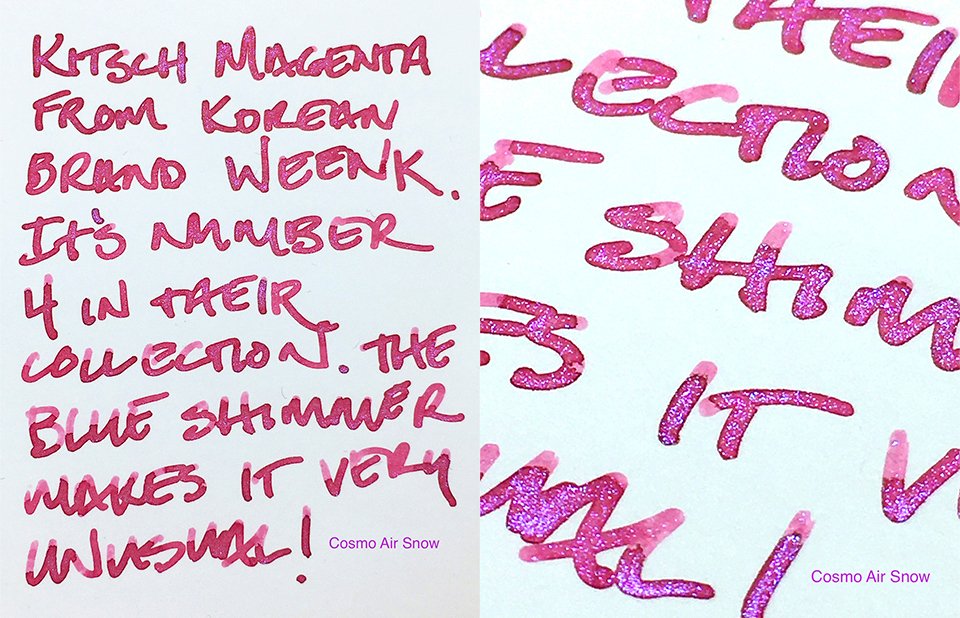 KITSCH MAGENTA
FROM KOREAN
BRAND WEENK.
IT'S NUMBER
4 IN THEIR
COLLECTION. THE
BLUE SHIMMER
MAKES IT VERY
UNUSUAL!
Cosmo Air Snow
HEI
LECTION
E SHIMM
S IT V
UAL!
Cosmo Air Snow